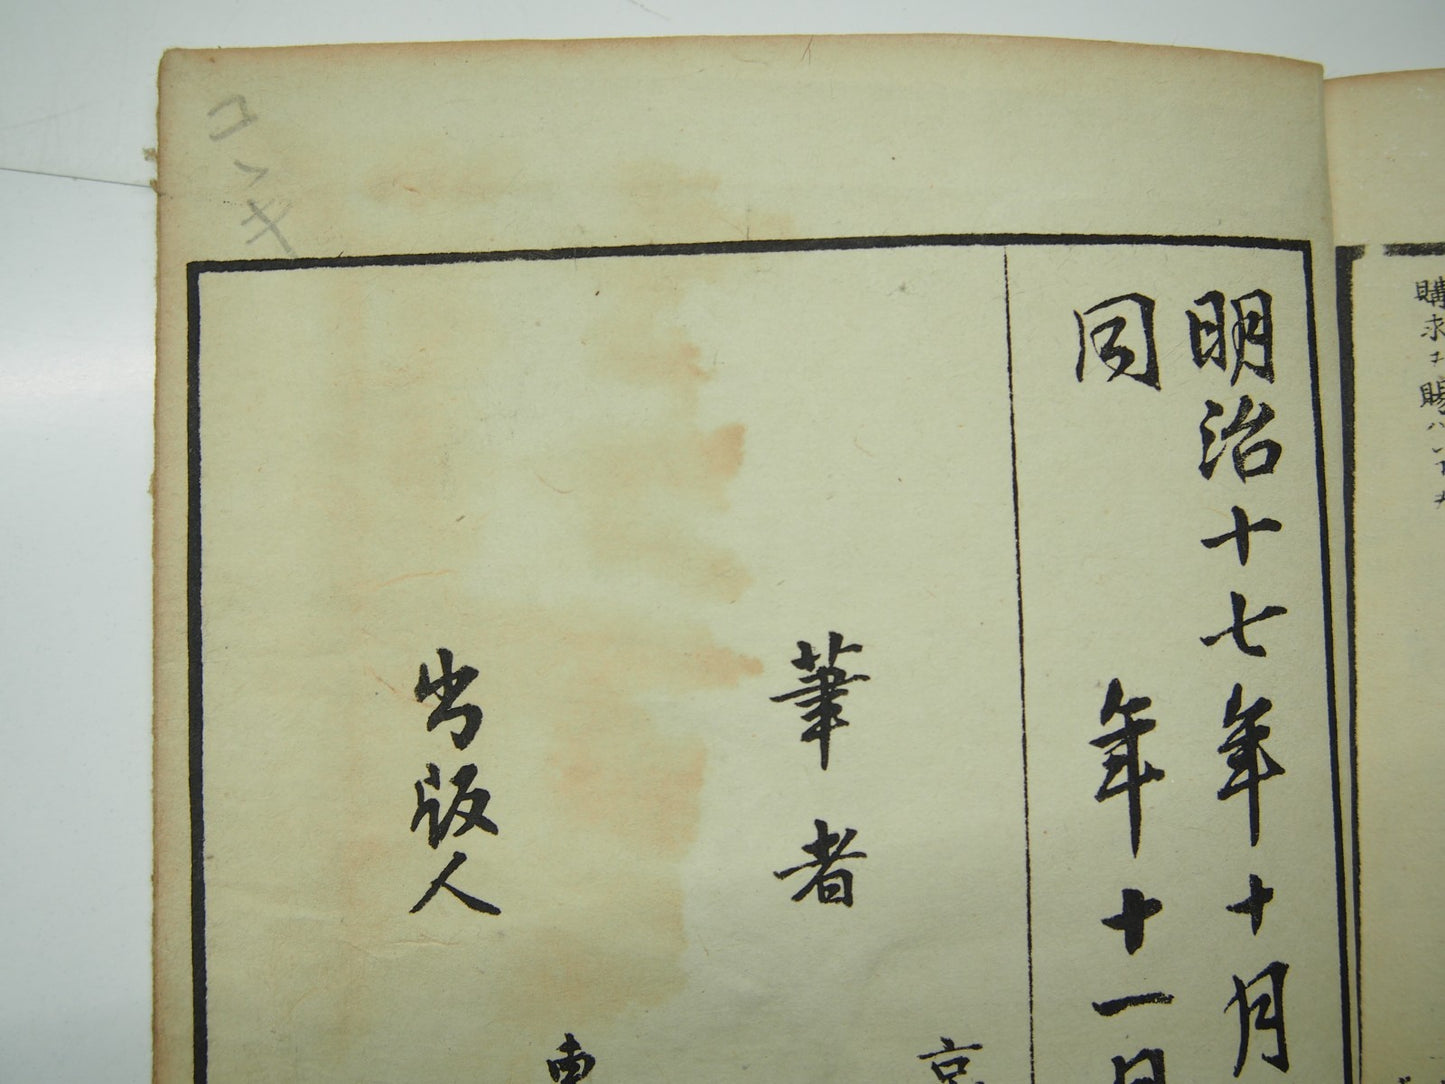 購求ヲ賜ハ
明治十七年十月
同年十一月
筆者
京
出版人
東
コンキ